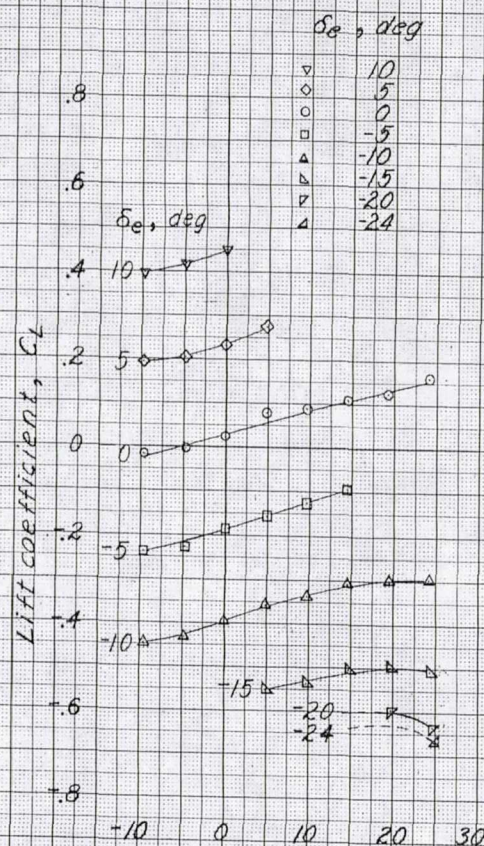 δe, deg
10
5
0
-5
-10
-15
-20
-24
.8
.6
δe, deg
.4
10
.2
5
0
0
-.2
-5
-.4
-10
-15
-.6
-20
-24
-.8
Lift coefficient, CL
-10 0 10 20 30